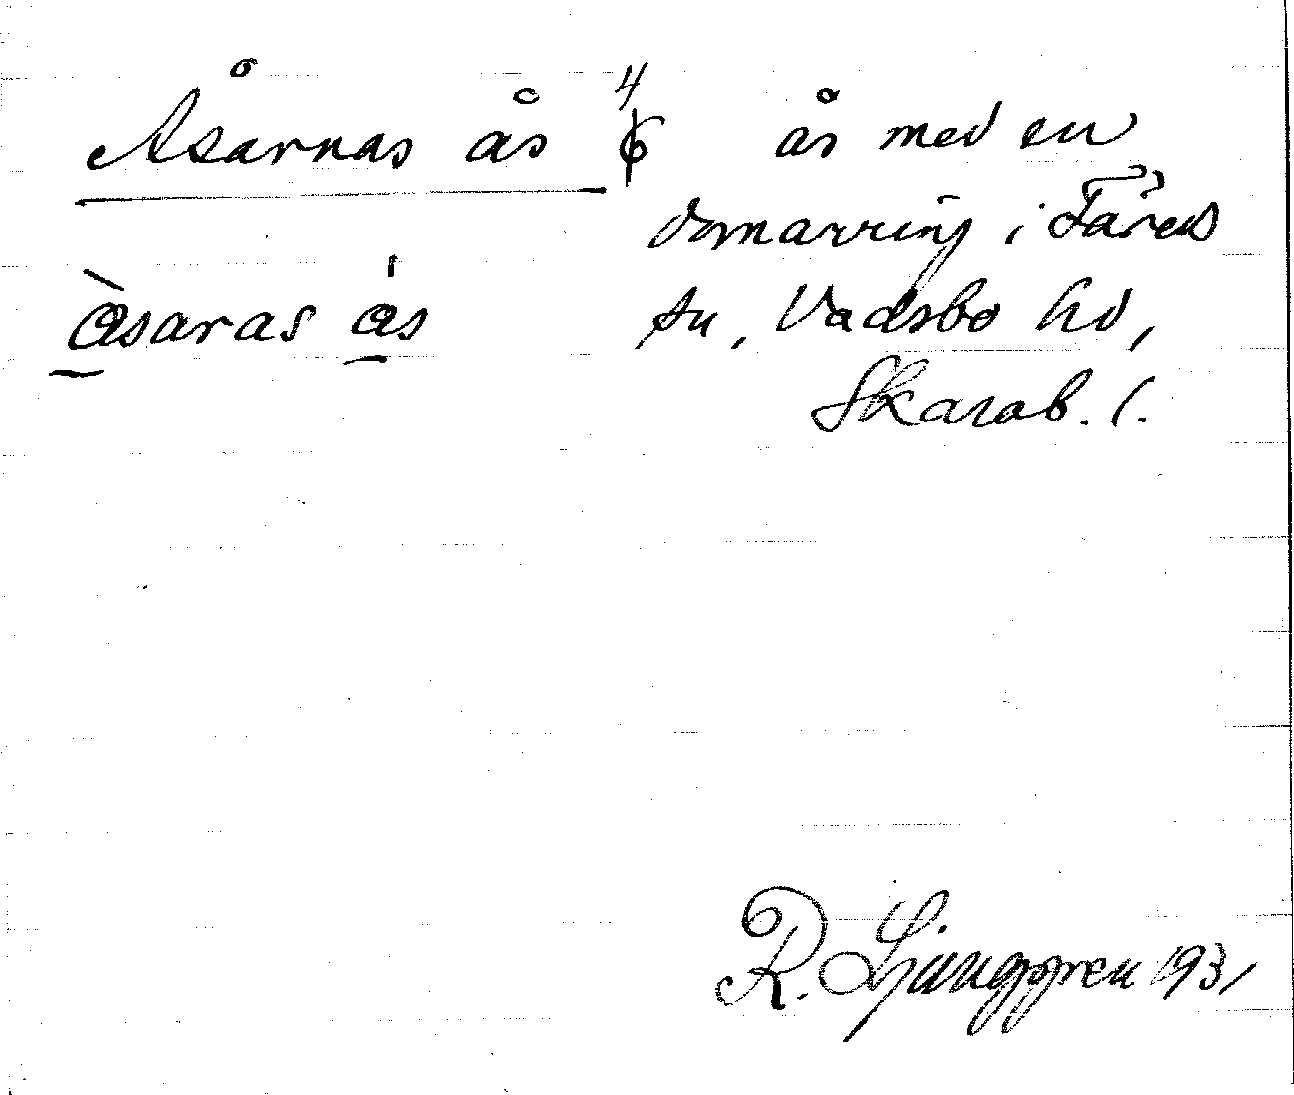 Åsarnas ås 4 ås med en
domarring i Färeds
åsaras ås sn, Vadsbo hd,
Skarab. l.
R. Ljunggren 1931